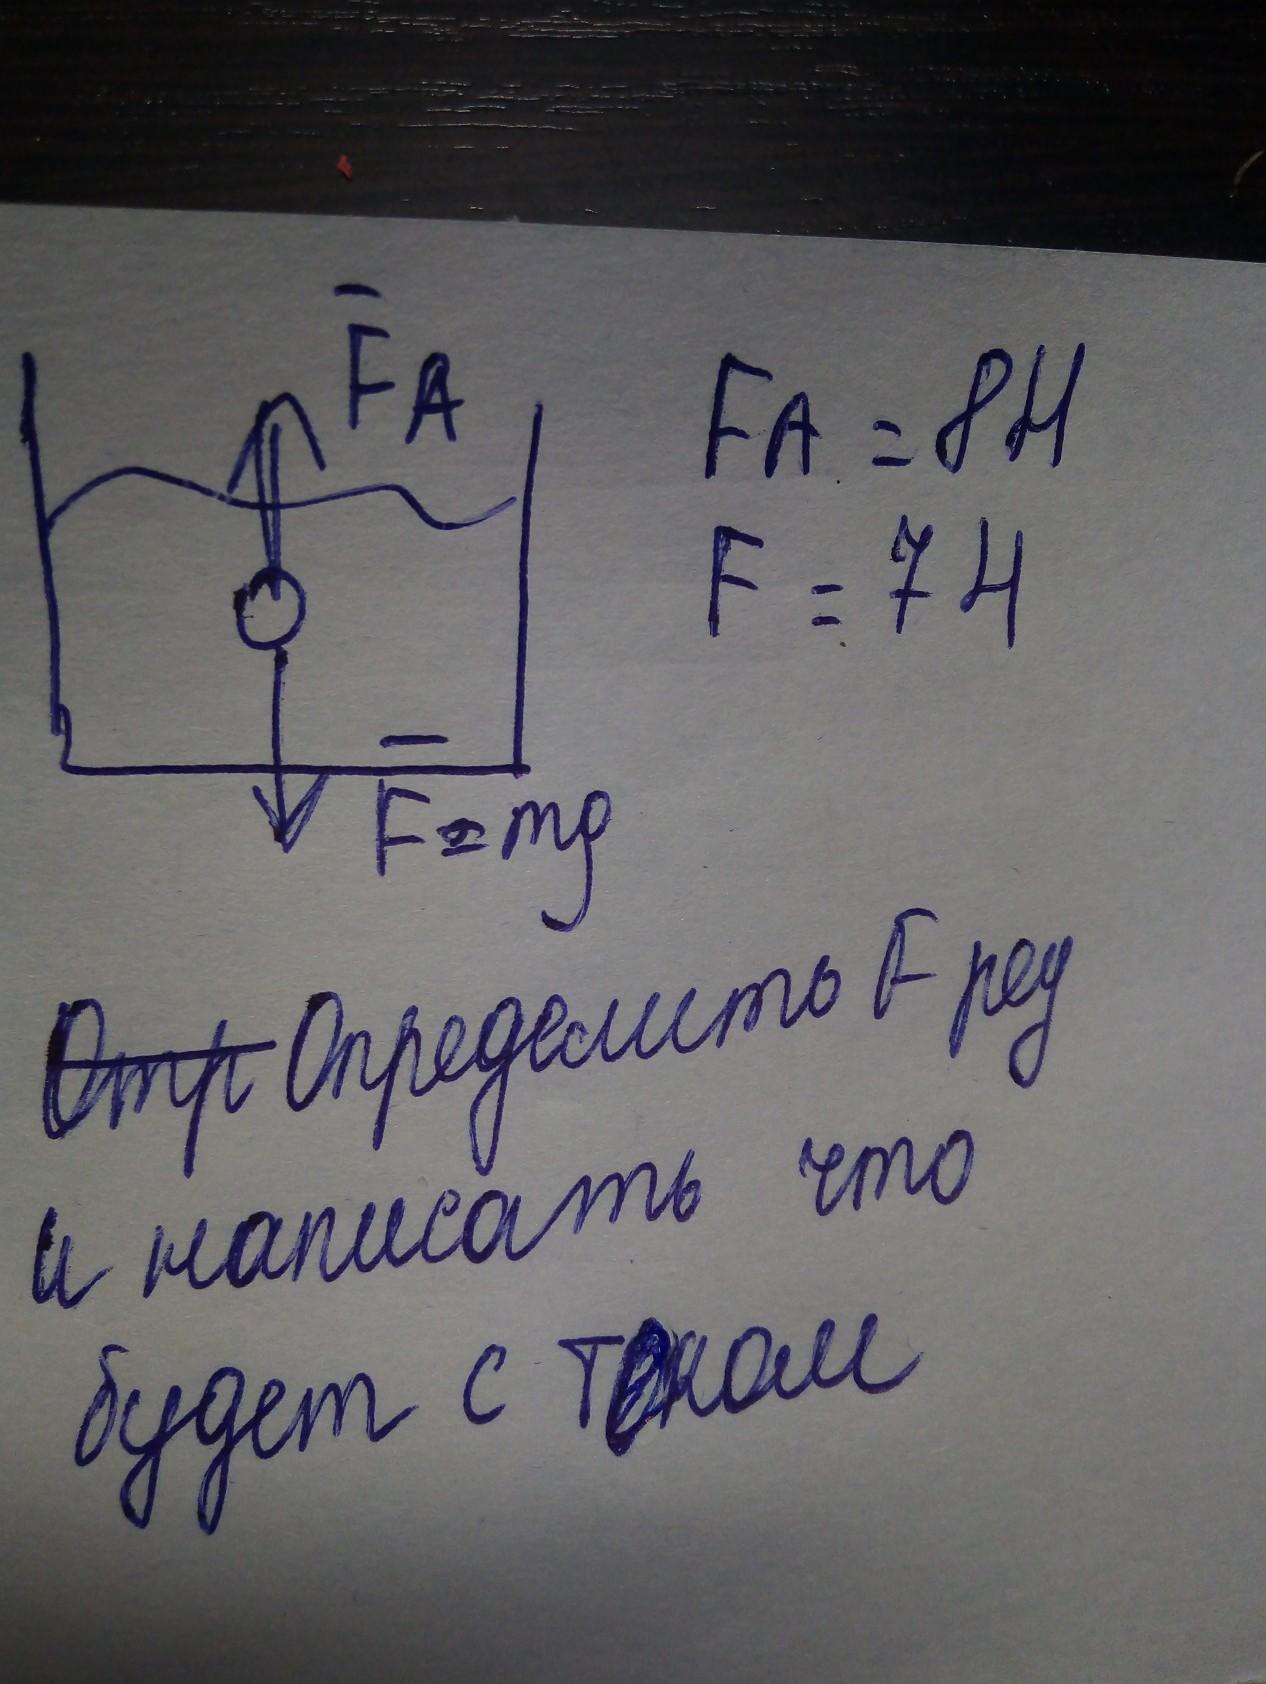 F̄A
FA = 8Н
F = 7Н
F̄ = mg
Отр Определить F рез
и написать что
будет с телом